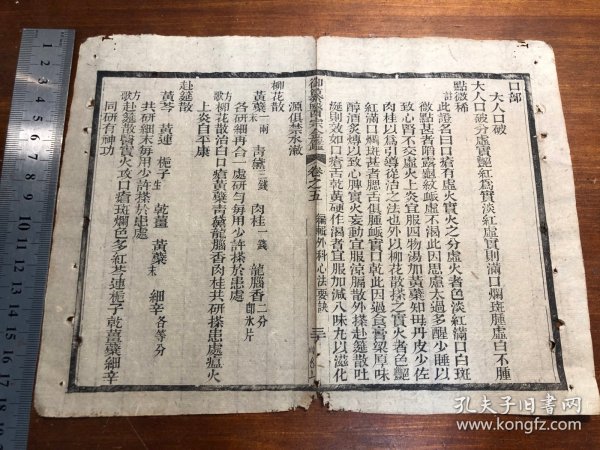 口部
大人口破
大人口破分虛實艷紅為實淡紅虛實則滿口爛斑腫虛白不腫
點微稀
註此證名曰口瘡有虛火實火之分虛火者色淡紅滿口白斑
微點甚者陷露龜紋脈虛不渴此因思慮太過多醒少睡以
致心腎不交虛火上炎宜服四物湯加黃蘗知母丹皮少佐
肉桂以為引導從治之法也外以柳花散搽之實火者色艷
紅滿口爛斑甚者腮舌俱腫脈實口乾此因過食膏粱厚味
醇酒炙煿以致心脾實火妄動宜服涼膈散外搽赴筵散吐
涎則效如口瘡舌乾黃硬作渴者宜服加減八味丸以滋化
源俱禁水漱
柳花散
黃蘗末一兩 青黛三錢 肉桂一錢 龍腦香二分即氷片
各研細再合一處研勻每用少許搽於患處
方歌柳花散治口瘡黃蘗青黛龍腦香肉桂共研搽患處虛火
上炎自平康
赴筵散
黃芩 黃連 梔子生 乾薑 黃蘗末 細辛各等分
共研細末每用少許搽於患處
方歌赴筵散醫實火攻口瘡斑爛色多紅芩連梔子乾薑蘗細辛
同研有神功
卷之五
編輯外科心法要訣
孔夫子旧书网
kongfz.com